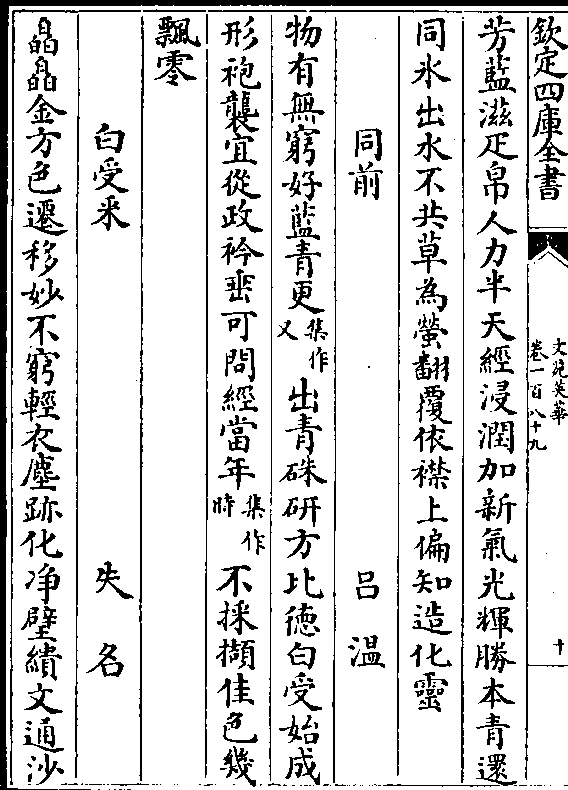 欽定四庫全書
文苑英華
卷一百八十九
十
芳藍滋疋帛人力半天經浸潤加新氣光輝勝本青還
同氷出水不共草為螢翻覆依襟上偏知造化靈
同前
吕溫
物有無窮好藍青更集作又出青硃研方比徳白受始成
形袍襲宜從政衿垂可問經當年集作時不採擷佳色幾
飄零
白受釆
失名
皛皛金方色遷移妙不窮輕衣塵跡化净壁繢文通沙